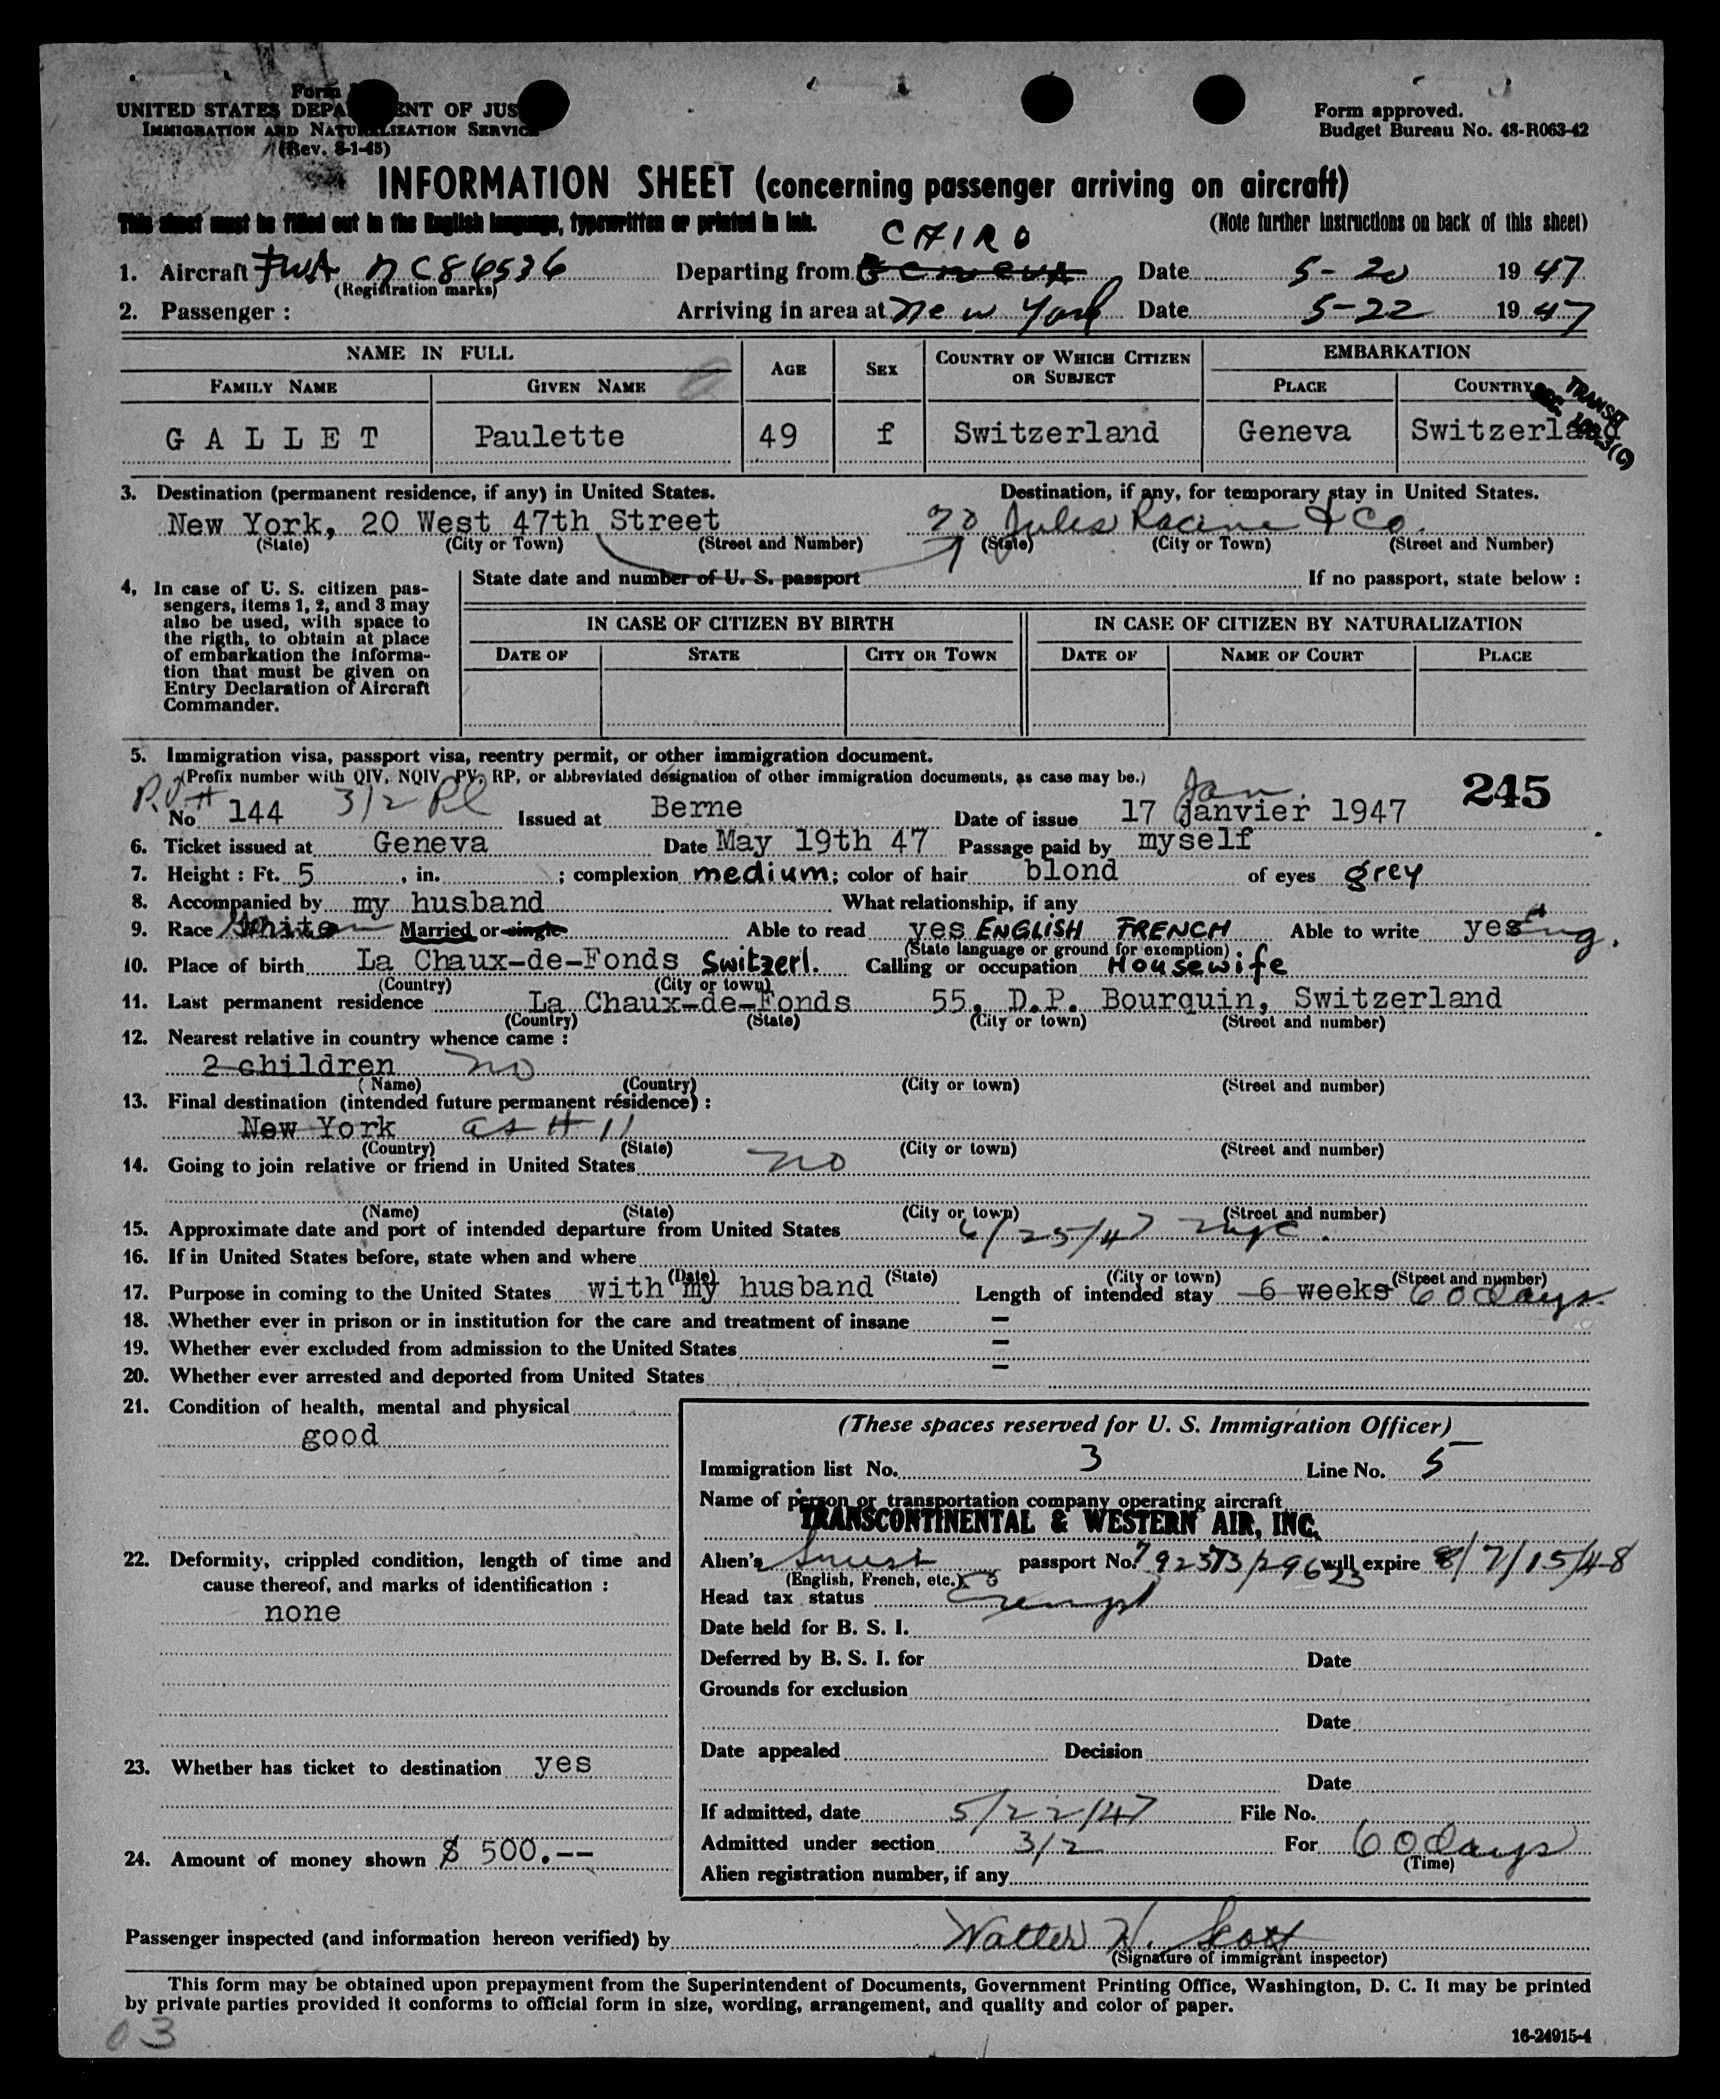 Form
UNITED STATES DEPA ENT OF JUS
IMMIGRATION AND NATURALIZATION SERVICE
(Rev. 8-1-45)
Form approved.
Budget Bureau No. 43-R063-42
INFORMATION SHEET (concerning passenger arriving on aircraft)
This sheet must be filled out in the English language, typewritten or printed in ink.
(Note further instructions on back of this sheet)
CAIRO
1. Aircraft TWA NC86536 Departing from GENEVA Date 5-20 19 47
(Registration marks)
2. Passenger : Arriving in area at New York Date 5-22 19 47
NAME IN FULL AGE SEX COUNTRY OF WHICH CITIZEN OR SUBJECT EMBARKATION
FAMILY NAME GIVEN NAME PLACE COUNTRY
TRANSIT
GALLET Paulette 49 f Switzerland Geneva Switzerland
3. Destination (permanent residence, if any) in United States. Destination, if any, for temporary stay in United States.
New York, 20 West 47th Street Jules Racine & Co.
(State) (City or Town) (Street and Number) (State) (City or Town) (Street and Number)
4, In case of U. S. citizen pas-
sengers, items 1, 2, and 3 may
also be used, with space to
the rigth, to obtain at place
of embarkation the informa-
tion that must be given on
Entry Declaration of Aircraft
Commander.
State date and number of U. S. passport If no passport, state below :
IN CASE OF CITIZEN BY BIRTH IN CASE OF CITIZEN BY NATURALIZATION
DATE OF STATE CITY OR TOWN DATE OF NAME OF COURT PLACE
5. Immigration visa, passport visa, reentry permit, or other immigration document.
(Prefix number with QIV, NQIV, PV, RP, or abbreviated designation of other immigration documents, as case may be.)
Jan. 245
P.V.# No 144 3/2 Issued at Berne Date of issue 17 janvier 1947
6. Ticket issued at Geneva Date May 19th 47 Passage paid by myself
7. Height : Ft. 5 , in. ; complexion medium; color of hair blond of eyes grey
8. Accompanied by my husband What relationship, if any
9. Race White Married or single Able to read yes ENGLISH FRENCH Able to write yes Eng.
(State language or ground for exemption)
10. Place of birth La Chaux-de-Fonds Switzerl. Calling or occupation Housewife
(Country) (City or town)
11. Last permanent residence La Chaux-de-Fonds 55, D.P. Bourquin, Switzerland
(Country) (State) (City or town) (Street and number)
12. Nearest relative in country whence came :
2 children no
(Name) (Country) (City or town) (Street and number)
13. Final destination (intended future permanent résidence) :
New York as # 11
(Country) (State) (City or town) (Street and number)
14. Going to join relative or friend in United States no
(Name) (State) (City or town) (Street and number)
15. Approximate date and port of intended departure from United States 6/25/47 nyc.
16. If in United States before, state when and where
(Date) (State) (City or town) (Street and number)
17. Purpose in coming to the United States with my husband Length of intended stay 6 weeks 60 days.
18. Whether ever in prison or in institution for the care and treatment of insane –
19. Whether ever excluded from admission to the United States –
20. Whether ever arrested and deported from United States –
21. Condition of health, mental and physical
good
22. Deformity, crippled condition, length of time and
cause thereof, and marks of identification :
none
23. Whether has ticket to destination yes
24. Amount of money shown $ 500.--
(These spaces reserved for U. S. Immigration Officer)
Immigration list No. 3 Line No. 5
Name of person or transportation company operating aircraft
TRANSCONTINENTAL & WESTERN AIR, INC.
Alien's Swiss passport No. will expire 7/15/48
(English, French, etc.)
Head tax status Exempt
Date held for B. S. I.
Deferred by B. S. I. for Date
Grounds for exclusion
Date
Date appealed Decision
Date
If admitted, date 5/22/47 File No.
Admitted under section 3/2 For 60 days
(Time)
Alien registration number, if any
Passenger inspected (and information hereon verified) by Walter W. Scott
(Signature of immigrant inspector)
This form may be obtained upon prepayment from the Superintendent of Documents, Government Printing Office, Washington, D. C. It may be printed
by private parties provided it conforms to official form in size, wording, arrangement, and quality and color of paper.
03
16-24915-4